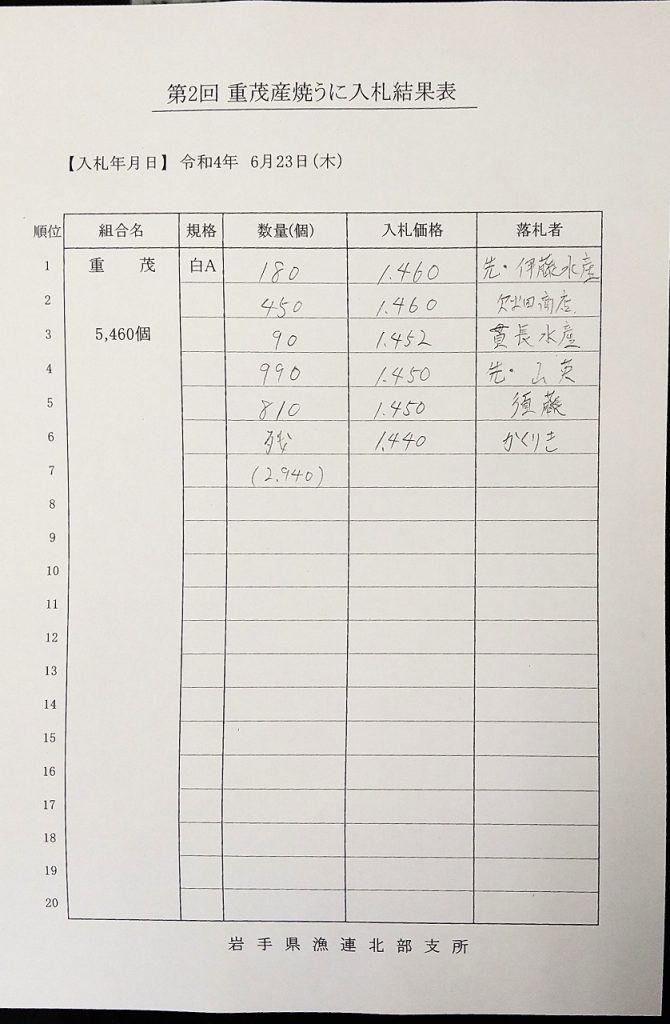 第2回 重茂産焼うに入札結果表
【入札年月日】 令和4年 6月23日(木)
順位 組合名 規格 数量(個) 入札価格 落札者
1 重 茂 白A 180 1.460 先・伊藤水産
2 450 1.460 商店
3 5,460個 90 1.452 貫長水産
4 990 1.450 先・山英
5 810 1.450 須藤
6 残 1.440 かくりき
7 (2.940)
8
9
10
11
12
13
14
15
16
17
18
19
20
岩手県漁連北部支所